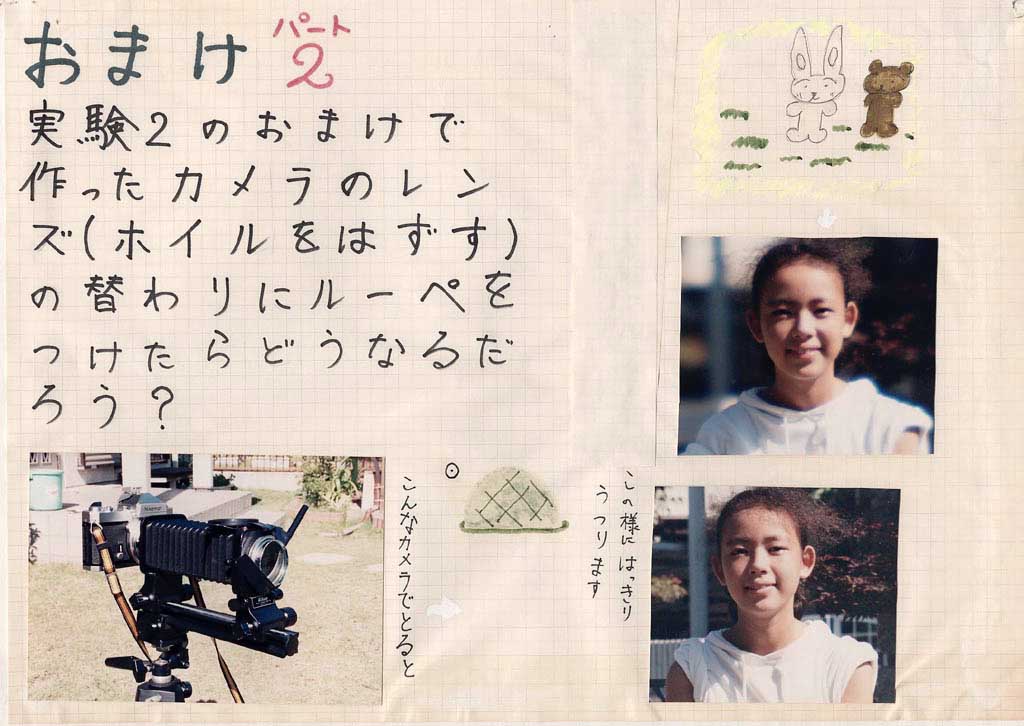 おまけ パート2
実験2のおまけで
作ったカメラのレン
ズ(ホイルをはずす)
の替わりにルーペを
つけたらどうなるだ
ろう?
こんなカメラでとると
この様にはっきり
うつります